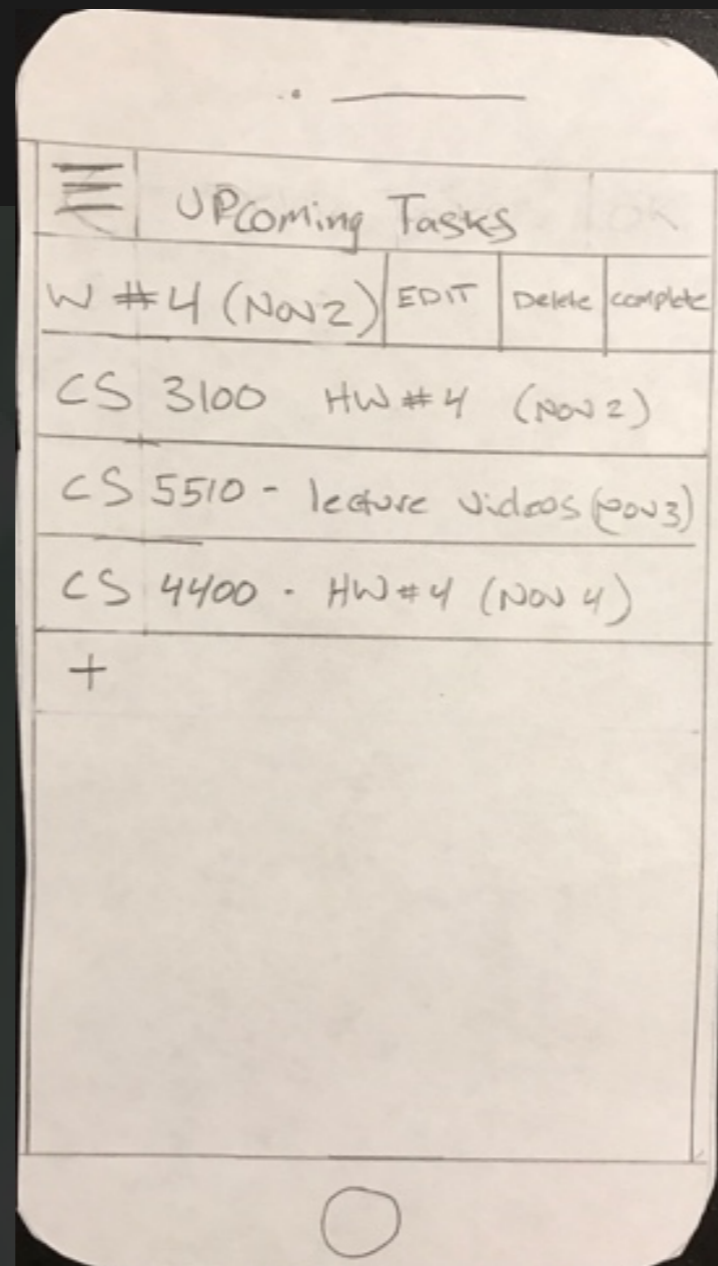 UPcoming Tasks
W #4 (Nov 2) EDIT Delete complete
CS 3100 HW #4 (Nov 2)
CS 5510 - lecture videos (Nov 3)
CS 4400 - HW #4 (Nov 4)
+